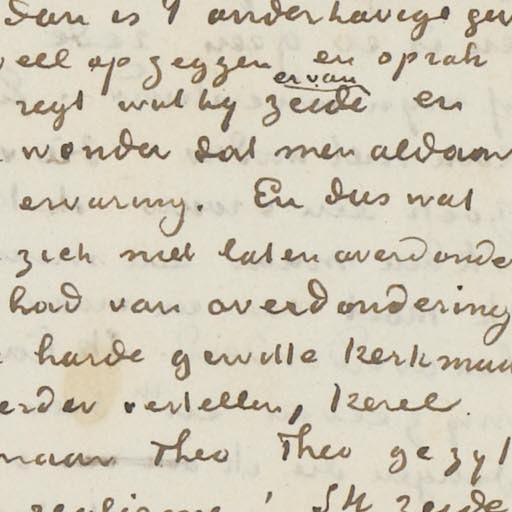 dan is 't onderhavige gev
veel op zeggen en oprak
ervan
regt wat hij zeide en
wonder dat men aldaar
ervaring. En dus wat
zich niet laten overdonde
had van overdondering
harde gewilde kerkmuu
erder vertellen, kerel.
maar Theo Theo ge zyt
zeide